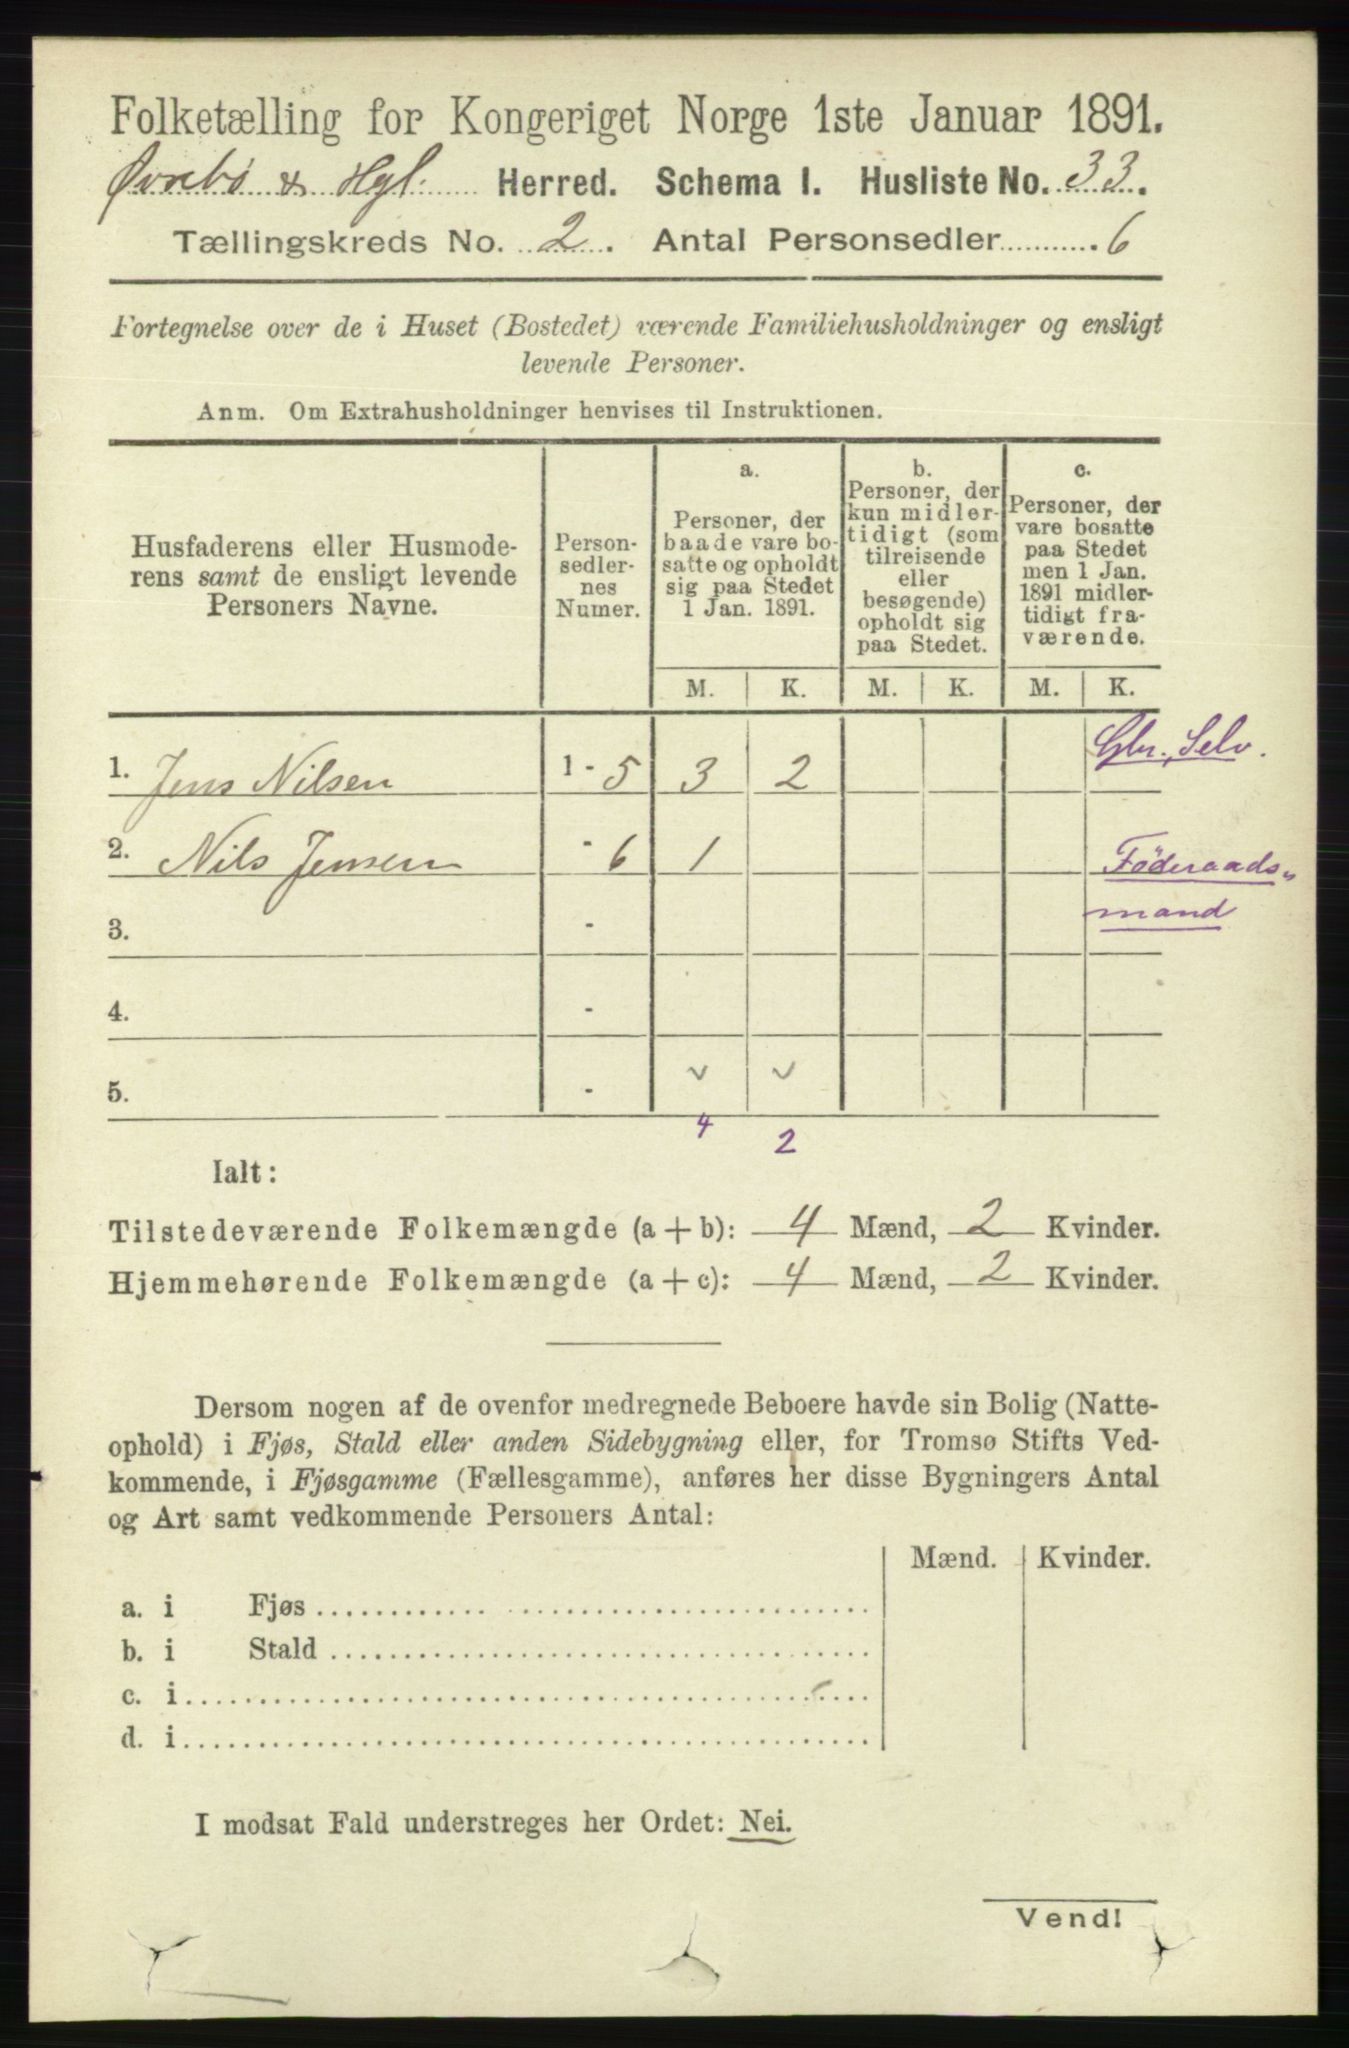 Folketælling for Kongeriget Norge 1ste Januar 1891.
Øvrebø & Hgl. Herred. Schema I. Husliste No. 33.
Tællingskreds No. 2. Antal Personsedler 6
Fortegnelse over de i Huset (Bostedet) værende Familiehusholdninger og ensligt
levende Personer.
Anm. Om Extrahusholdninger henvises til Instruktionen.
Husfaderens eller Husmode-
rens samt de ensligt levende
Personers Navne.
Person-
sedler-
nes
Numer.
a.
Personer, der
baade vare bo-
satte og opholdt
sig paa Stedet
1 Jan. 1891.
b.
Personer, der
kun midler-
tidigt (som
tilreisende
eller
besøgende)
opholdt sig
paa Stedet.
c.
Personer, der
vare bosatte
paa Stedet
men 1 Jan.
1891 midler-
tidigt fra-
værende.
M. K. M. K. M. K.
1. Jens Nilsen 1 - 5 3 2 Gbr., Selv.
2. Nils Jensen - 6 1 Föderaads-
mand
3. -
4. -
5. - v v
4 2
Ialt:
Tilstedeværende Folkemængde (a + b): 4 Mænd, 2 Kvinder.
Hjemmehørende Folkemængde (a + c): 4 Mænd, 2 Kvinder.
Dersom nogen af de ovenfor medregnede Beboere havde sin Bolig (Natte-
ophold) i Fjøs, Stald eller anden Sidebygning eller, for Tromsø Stifts Ved-
kommende, i Fjøsgamme (Fællesgamme), anføres her disse Bygningers Antal
og Art samt vedkommende Personers Antal:
Mænd. Kvinder.
a. i Fjøs
b. i Stald
c. i
d. i
I modsat Fald understreges her Ordet: Nei.
Vend!